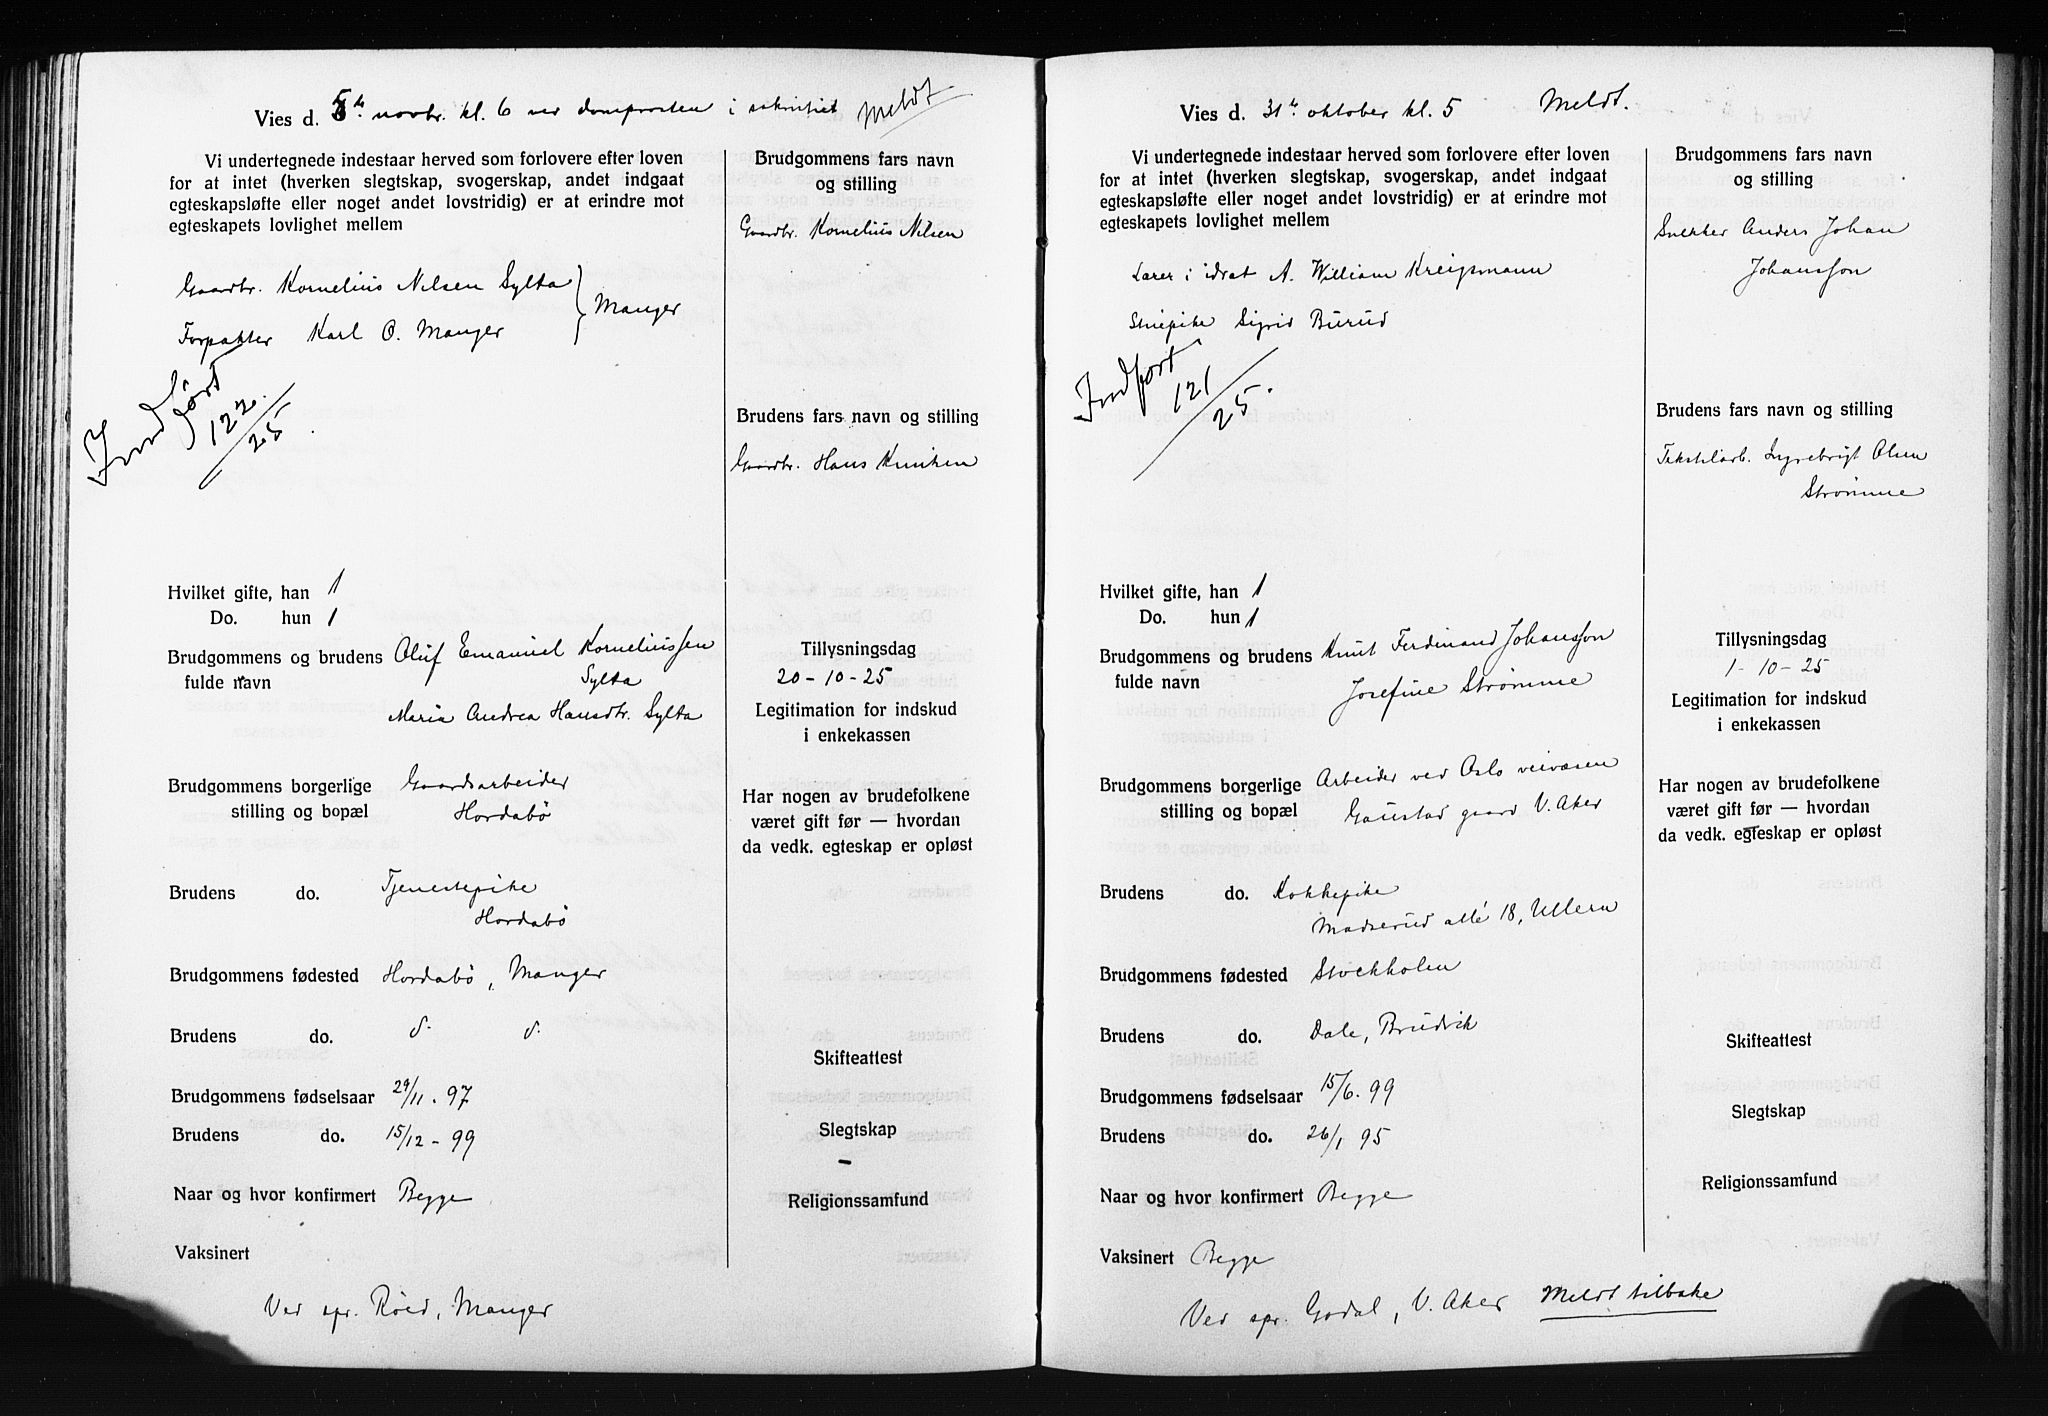 Vies d. 5te novbr. kl. 6 ved domprosten i sakristiet Meldt
Vi undertegnede indestaar herved som forlovere efter loven
for at intet (hverken slegtskap, svogerskap, andet indgaat
egteskapsløfte eller noget andet lovstridig) er at erindre mot
egteskapets lovlighet mellem
Gaardbr. Kornelius Nilsen Sylta
Forpakter Karl O. Manger
Manger
Indført
122
25
Brudgommens fars navn
og stilling
Gaardbr. Kornelius Nilsen
Brudens fars navn og stilling
Gaardbr. Hans
Hvilket gifte, han 1
Do. hun 1
Brudgommens og brudens Oluf Emanuel Korneliussen
fulde navn Sylta
Maria Andrea Hansdtr. Sylta
Brudgommens borgerlige Gaardsarbeider
stilling og bopæl Hordabø
Brudens do. Tjenestepike
Hordabø
Brudgommens fødested Hordabø, Manger
Brudens do. d. d.
Brudgommens fødselsaar 29/11 . 97
Brudens do. 15/12 - 99
Naar og hvor konfirmert Begge
Vaksinert
Ved spr. Røed, Manger
Tillysningsdag
20 - 10 - 25
Legitimation for indskud
i enkekassen
Har nogen av brudefolkene
været gift før — hvordan
da vedk. egteskap er opløst
Skifteattest
Slegtskap
–
Religionssamfund
Vies d. 31te oktober kl. 5 Meldt.
Vi undertegnede indestaar herved som forlovere efter loven
for at intet (hverken slegtskap, svogerskap, andet indgaat
egteskapsløfte eller noget andet lovstridig) er at erindre mot
egteskapets lovlighet mellem
Lærer i idræt A. William Kreigsmann
Stuepike Sigrid Burud
Indført
121
25.
Brudgommens fars navn
og stilling
Snekker Anders Johan
Johansson
Brudens fars navn og stilling
Tekstilarb. Ingebrigt Olsen
Strømme
Hvilket gifte, han 1
Do. hun 1
Brudgommens og brudens Knut Ferdinand Johansson
fulde navn Josefine Strømme
Brudgommens borgerlige Arbeider ved Oslo veivæsen
stilling og bopæl Gaustad gaard V. Aker
Brudens do. Kokkepike
Madserud allé 18, Ullern
Brudgommens fødested Stockholm
Brudens do. Dale, Brudvik
Brudgommens fødselsaar 15/6. 99
Brudens do. 26/1 95
Naar og hvor konfirmert Begge
Vaksinert Begge
Ved spr. Godal, V. Aker Meldt tilbake
Tillysningsdag
1 - 10 - 25
Legitimation for indskud
i enkekassen
Har nogen av brudefolkene
været gift før — hvordan
da vedk. egteskap er opløst
Skifteattest
Slegtskap
Religionssamfund